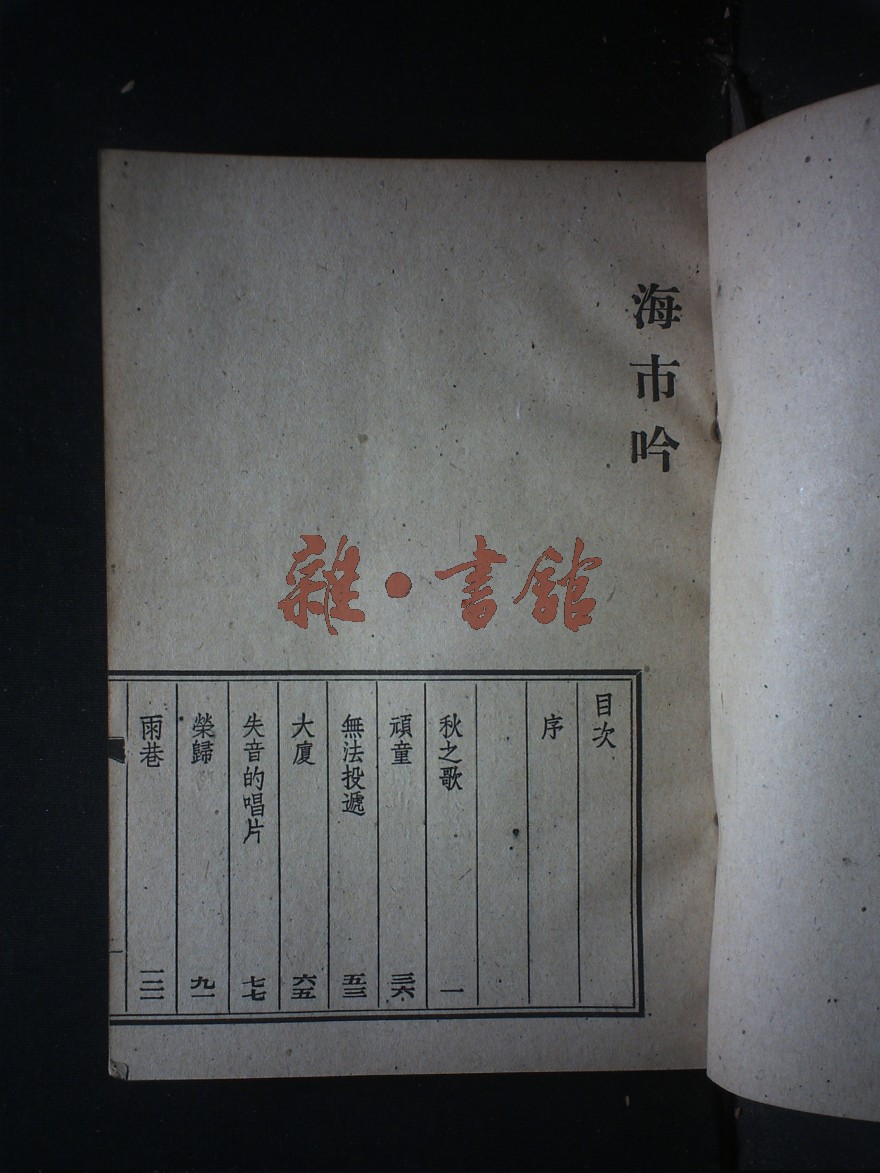 海市吟
雜·書館
目次
序
秋之歌 一
頑童 三六
無法投遞 五三
大廈 六五
失音的唱片 七七
榮歸 九一
雨巷